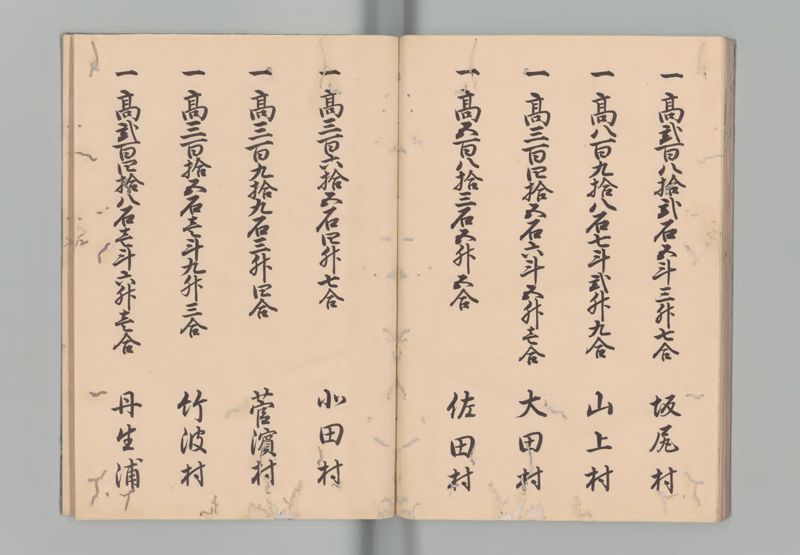 一高弐百八拾弐石五斗三升七合 坂尻村
一高八百九拾八石七斗弐升九合 山上村
一高三百四拾五石六斗五升壱合 大田村
一高五百八拾三石五升五合 佐田村
一高三百六拾五石四升七合 北田村
一高三百九拾九石三升四合 菅濱村
一高三百拾五石壱斗九升三合 竹波村
一高弐百四拾八石壱斗六升壱合 丹生浦